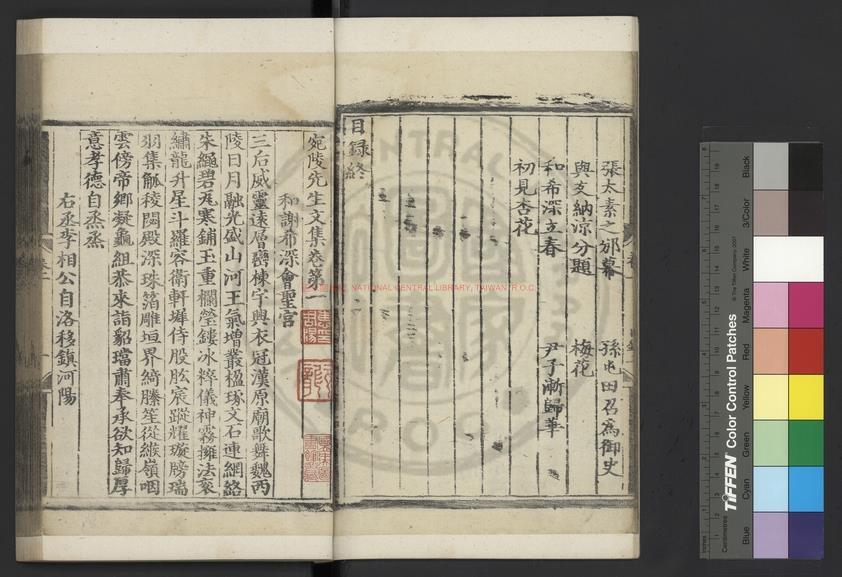 張太素之邠幕
孫屯田召為御史
與友納涼分題
梅花
和希深立春
尹子漸歸華
初見杏花
目錄終
宛陵先生文集卷第一
和謝希深會聖宮
三后威靈遠層巒棟宇興衣冠漢原廟歌舞魏西
陵日月融光盛山河王氣增叢楹琢文石連網絡
朱繩碧瓦寒鋪玉重欄瑩鏤冰粹儀神霧擁法袞
繡龍升星斗羅容衛軒墀侍股肱宸蹤耀璇牓瑞
羽集觚稜閟殿深珠箔雕垣界綺縢笙從緱嶺咽
雲傍帝鄉凝龜組恭來詣貂璫肅奉承欲知歸厚
意孝德自烝烝
右丞李相公自洛移鎮河陽
NATIONAL CENTRAL LIBRARY, TAIWAN (R.O.C
TIFFEN Color Control Patches
© The Tiffen Company, 2007
Centimetres
Inches
Blue
Cyan
Green
Yellow
Red
Magenta
White
3/Color
Black